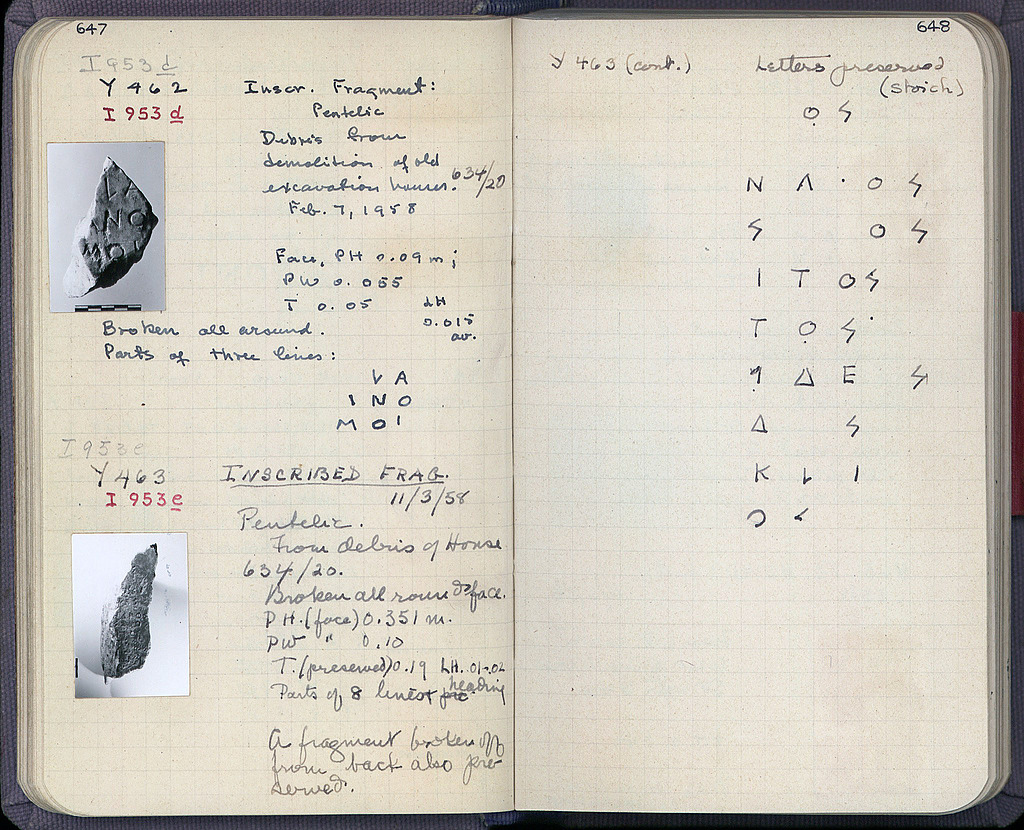 647
I 953 d
Y 462
I 953 d
Inscr. Fragment:
Pentelic
Debris from
demolition of old
excavation houses. 634/20
Feb. 7, 1958
Face, PH 0.09 m;
PW 0.055
T 0.05
LH
0.015
av.
Broken all around.
Parts of three lines:
Λ Α
Ι Ν Ο
Μ Ο Ι
I 953 e
Y 463
I 953 e
INSCRIBED FRAG.
11/3/58
Pentelic.
From debris of House
634/20.
Broken all round & face.
P H. (face) 0.351 m.
PW " 0.10
T. (preserved) 0.19 LH. .01-.02
Parts of 8 lines + heading
A fragment broken off
from back also pre-
served.
648
Y 463 (cont.)
Letters preserved
(stoich)
Ο Ϟ
Ν Λ · Ο Ϟ
Ϟ Ο Ϟ
Ι Τ Ο Ϟ
Τ Ο Ϟ
Δ Ε Ϟ
Δ Ϟ
Κ Ι